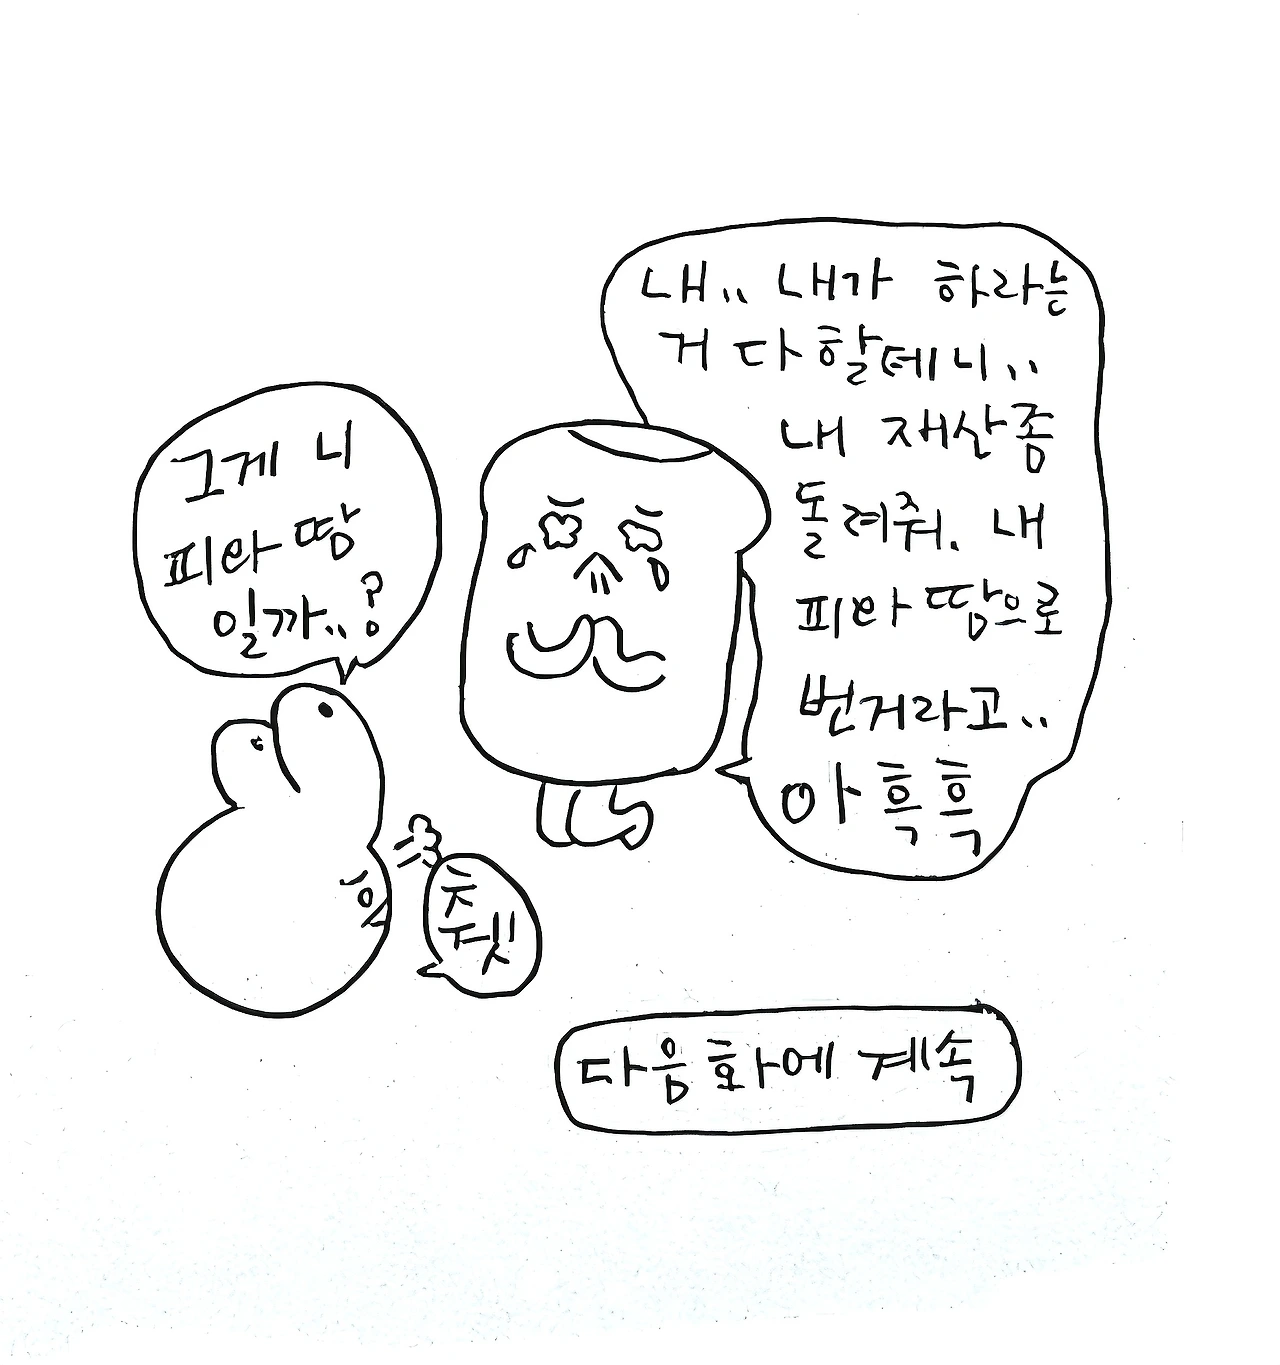 내.. 내가 하라는
거 다 할테니..
내 재산좀
돌려줘. 내
피와 땀으로
번거라고..
아 흑흑
그게 니
피와 땀
일까..?
츳
쥣
다음 화에 계속